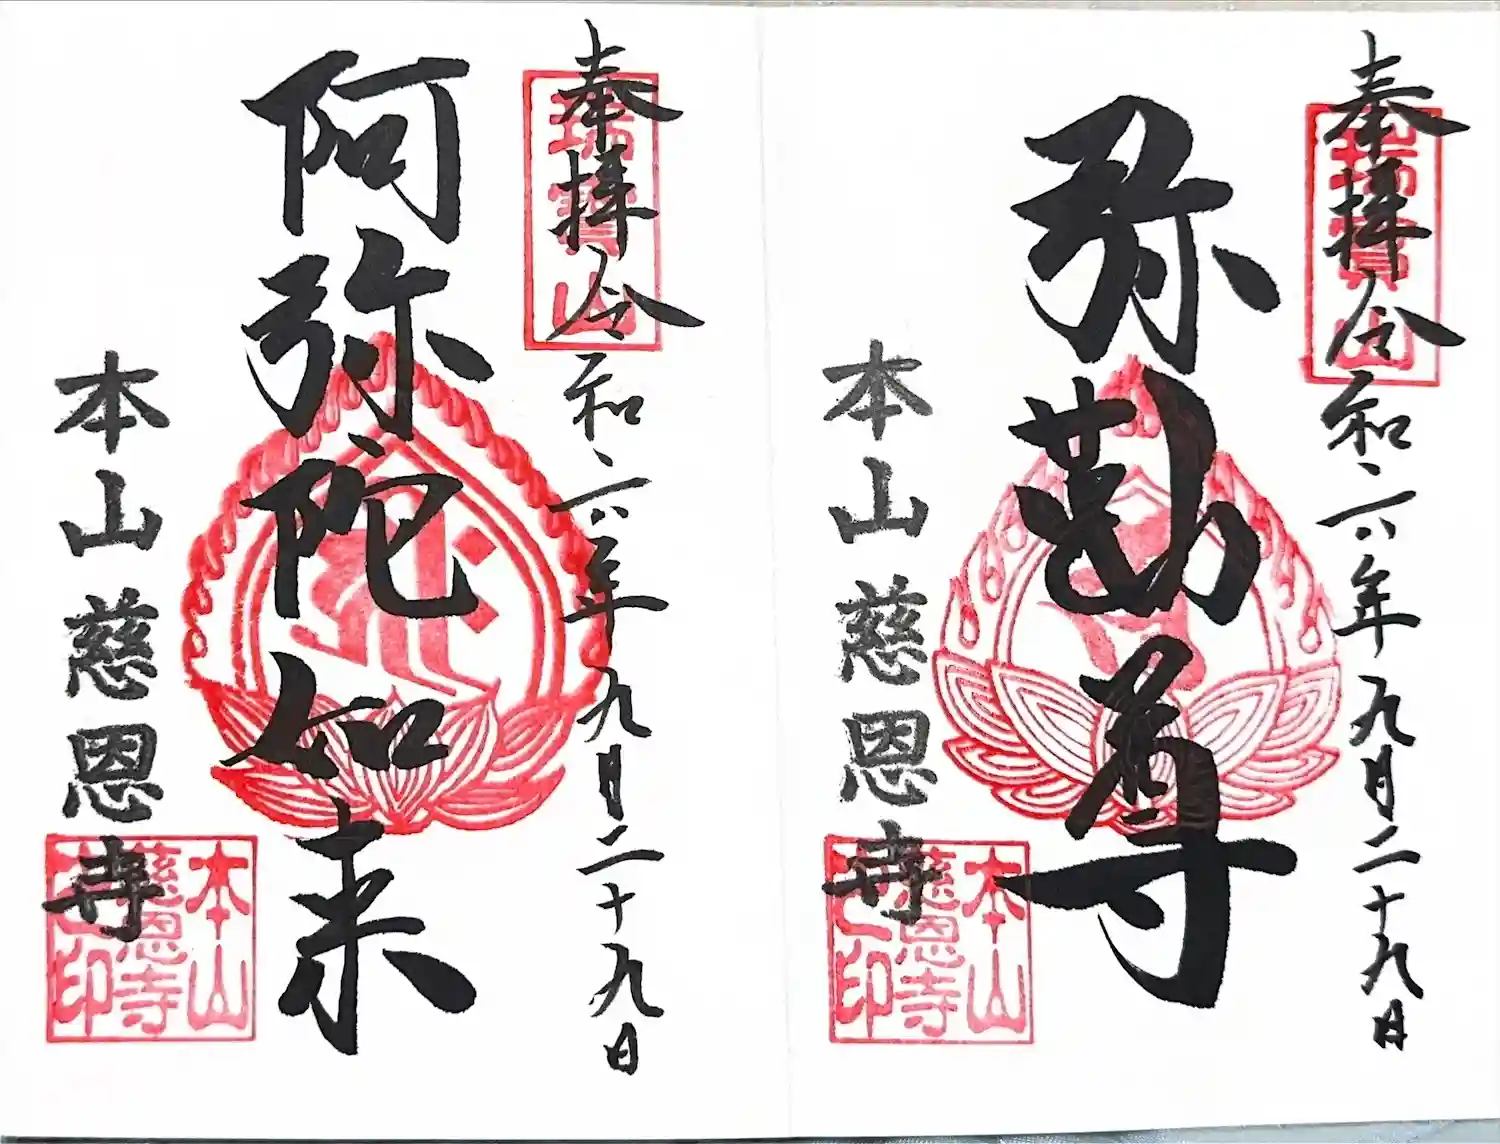 奉拝 令和六年九月二十九日
瑞寳山
弥勒尊
本山慈恩寺
本山
慈恩寺
之印
奉拝 令和六年九月二十九日
瑞寳山
阿弥陀如来
本山慈恩寺
本山
慈恩寺
之印